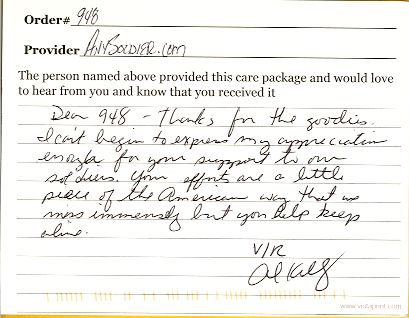 Order# 948
Provider AnySoldier.com
The person named above provided this care package and would love
to hear from you and know that you received it
Dear 948 - Thanks for the goodies.
I can't begin to express my appreciation
enough for your support to our
soldiers. Your efforts are a little
piece of the American way that we
miss immensely but you help keep
alive.
V/R
www.vistaprint.com